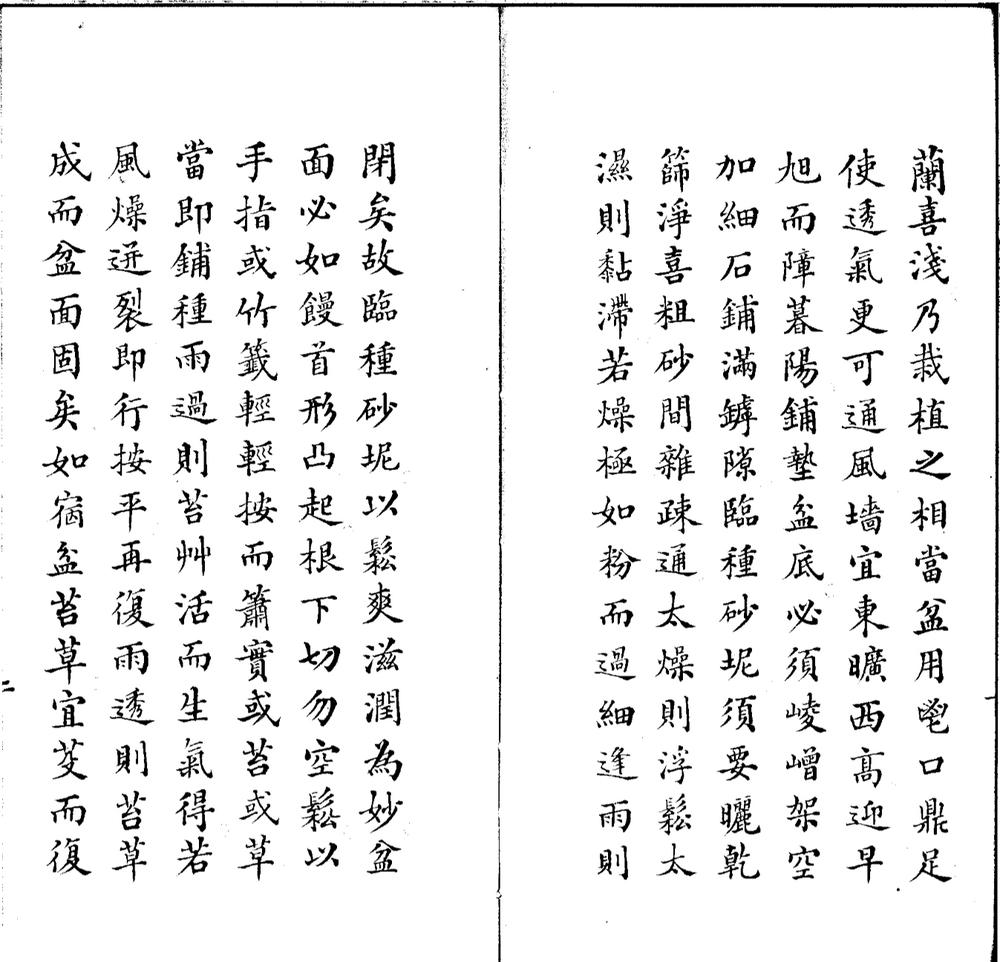 蘭喜淺乃栽植之相當盆用甕口鼎足
使透氣更可通風墻宜東曠西高迎早
旭而障暮陽鋪墊盆底必須崚嶒架空
加細石鋪滿罅隙臨種砂坭須要曬乾
篩淨喜粗砂間雜疎通太燥則浮鬆太
濕則黏滯若燥極如粉而過細逢雨則
閉矣故臨種砂坭以鬆爽滋潤為妙盆
面必如饅首形凸起根下切勿空鬆以
手指或竹籤輕輕按而簫實或苔或草
當即鋪種雨過則苔艸活而生氣得若
風燥迸裂即行按平再復雨透則苔草
成而盆面固矣如宿盆苔草宜芟而復